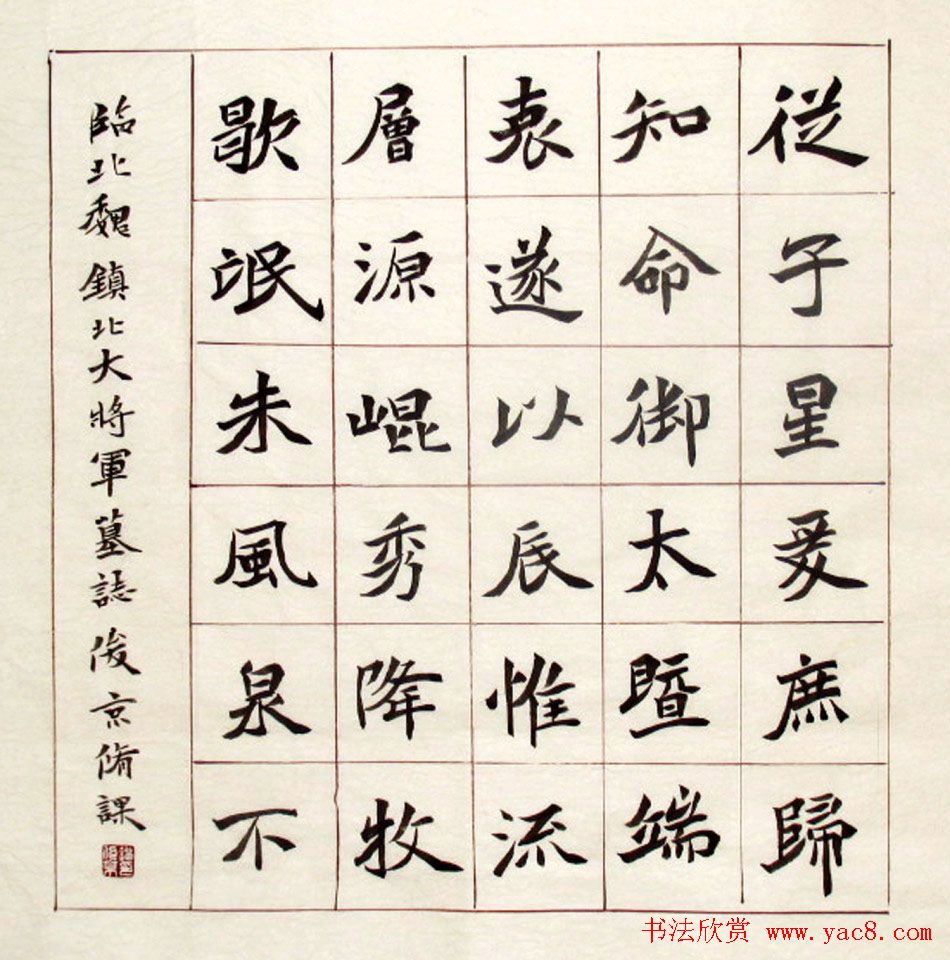 從子星爰庶歸
知命御太暨端
衷遂以辰惟流
層源崐秀降牧
歇氓朱風泉不
臨北魏鎮北大將軍墓誌俊京脩課
书法欣赏 www.yac8.com